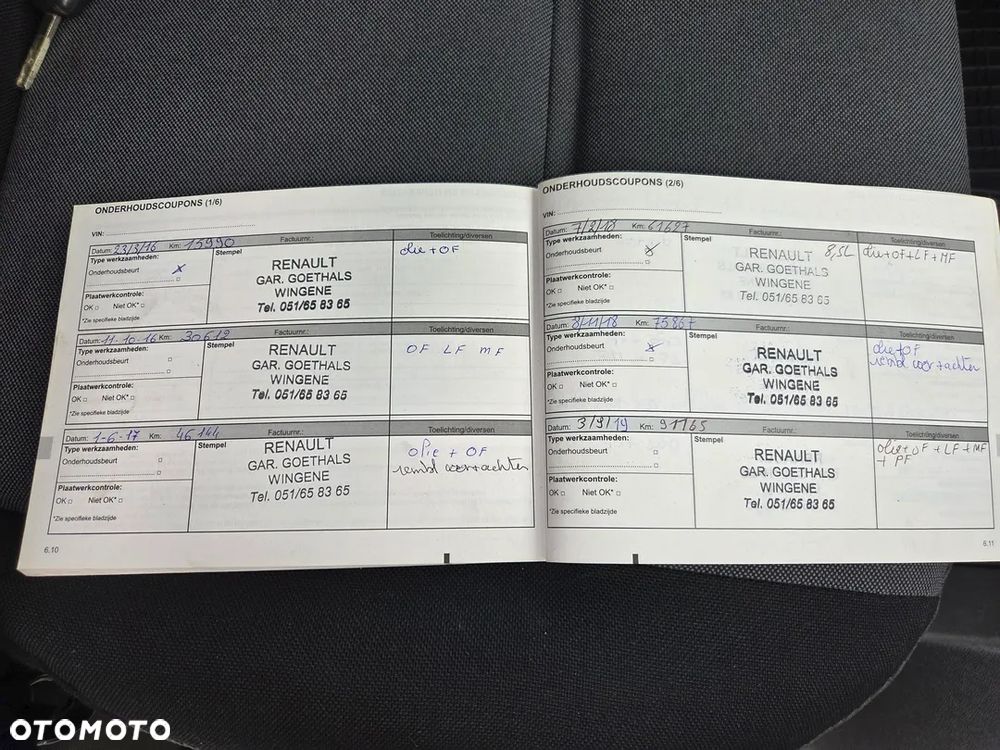 ONDERHOUDSCOUPONS (1/6)
VIN:
Datum: 23/3/16 Km: 15990 Factuurnr.: Toelichting/diversen
Type werkzaamheden:
Onderhoudsbeurt x
Stempel
RENAULT
GAR. GOETHALS
WINGENE
Tel. 051/65 83 65
olie + OF
Plaatwerkcontrole:
OK □ Niet OK* □
*Zie specifieke bladzijde
Datum: 11-10-16 Km: 30612 Factuurnr.: Toelichting/diversen
Type werkzaamheden:
Onderhoudsbeurt □
Stempel
RENAULT
GAR. GOETHALS
WINGENE
Tel. 051/65 83 65
OF LF MF
Plaatwerkcontrole:
OK □ Niet OK* □
*Zie specifieke bladzijde
Datum: 1-6-17 Km: 46144 Factuurnr.: Toelichting/diversen
Type werkzaamheden:
Onderhoudsbeurt □
Stempel
RENAULT
GAR. GOETHALS
WINGENE
Tel. 051/65 83 65
Olie + OF
rembl voor+achter
Plaatwerkcontrole:
OK □ Niet OK* □
*Zie specifieke bladzijde
6.10
ONDERHOUDSCOUPONS (2/6)
VIN:
Datum: 7/2/18 Km: 61627 Factuurnr.: Toelichting/diversen
Type werkzaamheden:
Onderhoudsbeurt x
Stempel
RENAULT 8,5L
GAR. GOETHALS
WINGENE
Tel. 051/65 83 65
olie+OF+LF+MF
Plaatwerkcontrole:
OK □ Niet OK* □
*Zie specifieke bladzijde
Datum: 8/11/18 Km: 75867 Factuurnr.: Toelichting/diversen
Type werkzaamheden:
Onderhoudsbeurt x
Stempel
RENAULT
GAR. GOETHALS
WINGENE
Tel. 051/65 83 65
olie+OF
rembl voor+achter
Plaatwerkcontrole:
OK □ Niet OK* □
*Zie specifieke bladzijde
Datum: 3/9/19 Km: 91165 Factuurnr.: Toelichting/diversen
Type werkzaamheden:
Onderhoudsbeurt □
Stempel
RENAULT
GAR. GOETHALS
WINGENE
Tel. 051/65 83 65
olie+OF+LF+MF
+ PF
Plaatwerkcontrole:
OK □ Niet OK* □
*Zie specifieke bladzijde
6.11
OTOMOTO